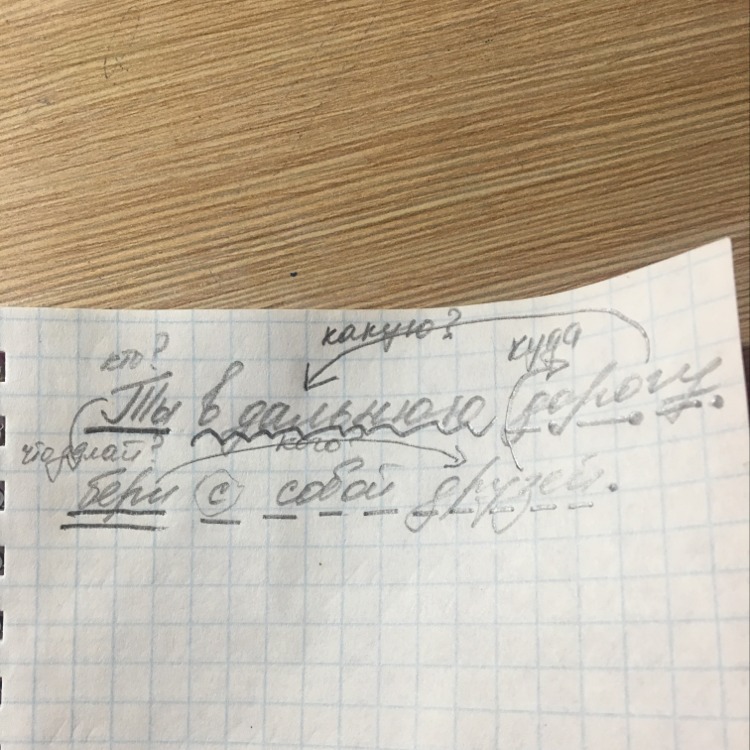 какую?
кто? куда
Ты в дальнюю дорогу.
что делай? кого?
бери с собой друзей.